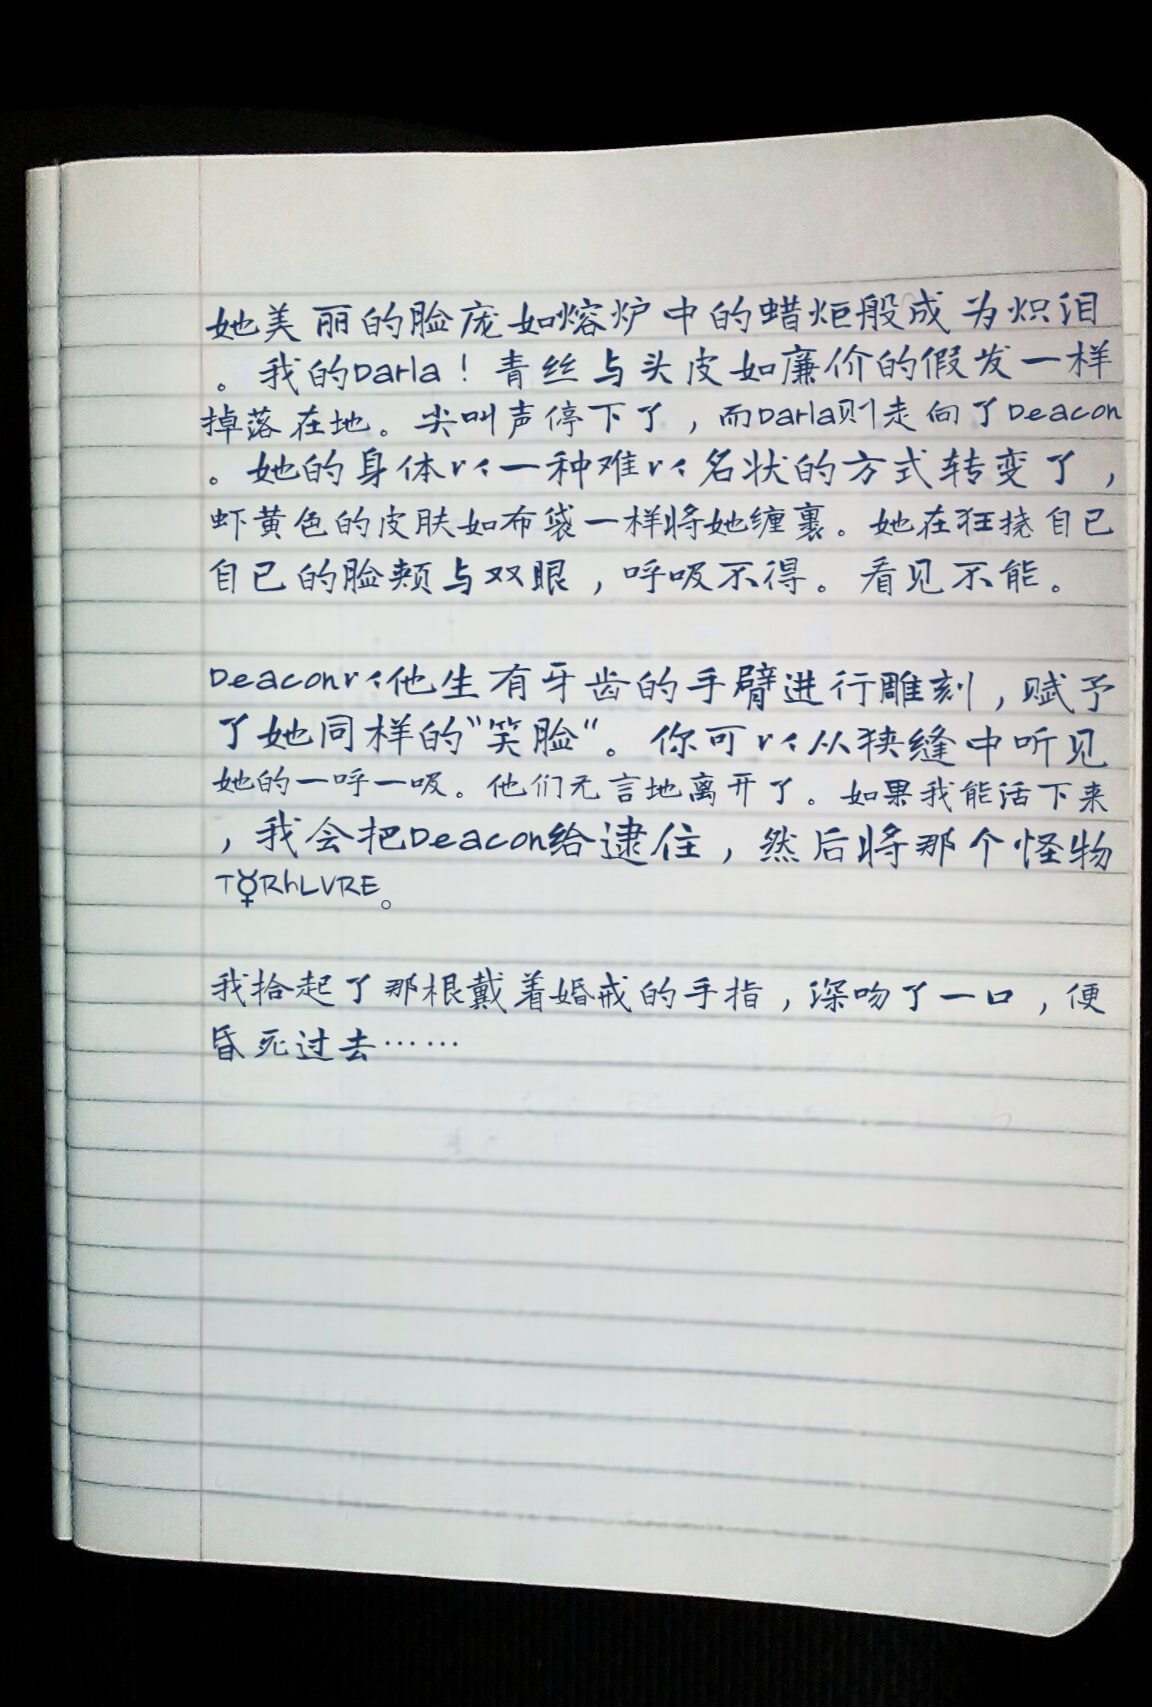 她美丽的脸庞如熔炉中的蜡炬般成为炽泪
。我的Darla！青丝与头皮如廉价的假发一样
掉落在地。尖叫声停下了，而Darla则走向了Deacon
。她的身体以一种难以名状的方式转变了，
虾黄色的皮肤如布袋一样将她缠裹。她在狂挠自己
自己的脸颊与双眼，呼吸不得。看见不能。
Deacon以他生有牙齿的手臂进行雕刻，赋予
了她同样的“笑脸”。你可以从狭缝中听见
她的一呼一吸。他们无言地离开了。如果我能活下来
，我会把Deacon给逮住，然后将那个怪物
T☿RhLVRE。
我拾起了那根戴着婚戒的手指，深吻了一口，便
昏死过去……